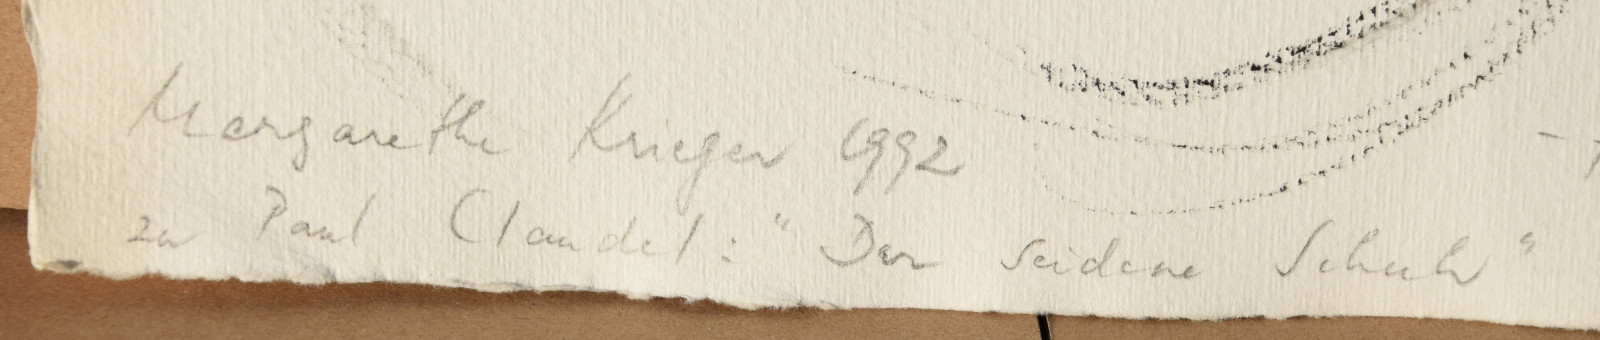 Margarethe Krieger 1992
zu Paul Claudel: "Der seidene Schuh"